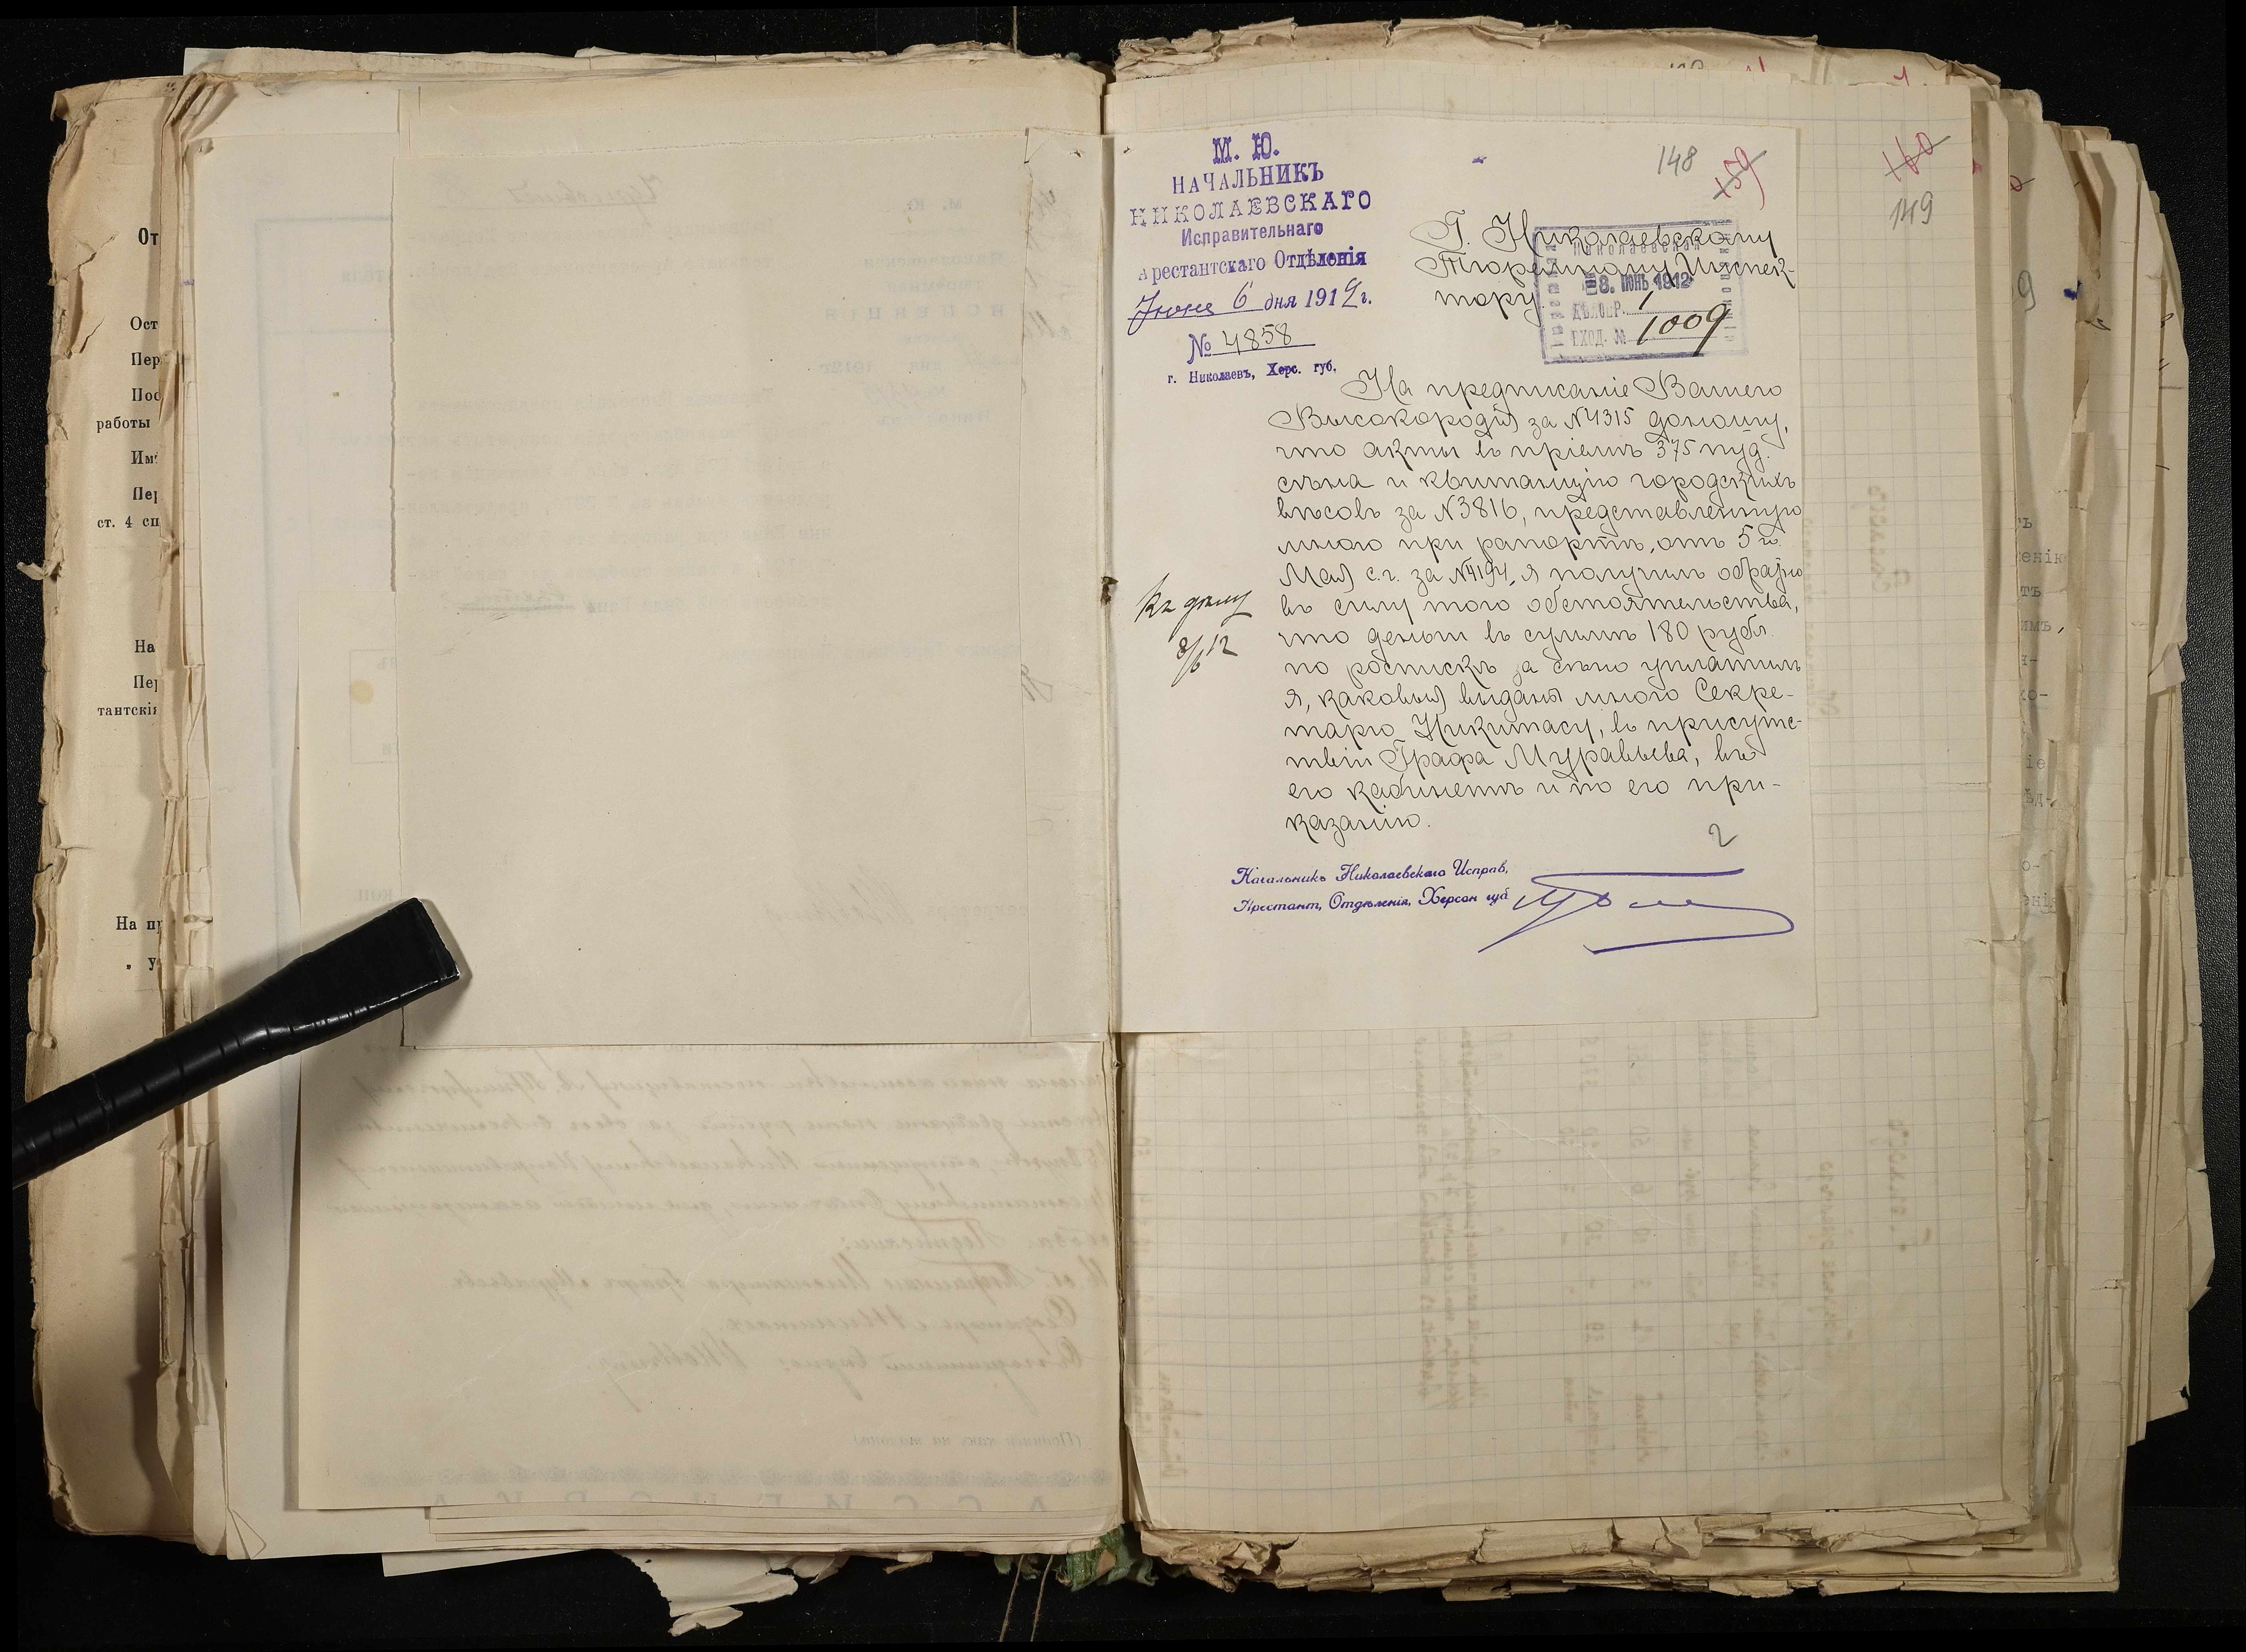 От
Ост
Пер
Пос
работы
Им
Пер
ст. 4 сп
На
Пер
тантскія
На пр
„ у
М. Ю.
НАЧАЛЬНИКЪ
НИКОЛАЕВСКАГО
Исправительнаго
Арестантскаго Отдѣленія
Іюня 6 дня 1912 г.
№ 4858
г. Николаевъ, Херс. губ.
148
159
160
149
Г. Николаевскому
Тюремному Инспек-
тору
Николаевская
8. ІЮНЬ 1912
ДѢЛОПР. 1
ВХОД. № 1009
На предписаніе Вашего
Высокородія за №4315 доношу,
что акты въ пріемѣ 375 пуд.
сѣна и квитанцію городскихъ
вѣсовъ за №3816, представленную
мною при рапортѣ, отъ 5 го
Мая с.г. за №4194, я получилъ обратно
въ силу того обстоятельства,
что деньги въ суммѣ 180 рубл.
по роспискѣ за сѣно уплатилъ
я, каковыя выданы мною Секре-
тарю Никитасу, въ присутс-
твіи Графа Муравьева, въ
его кабинетѣ и по его при-
казанію.
Къ дѣлу
8/6 12
2
Начальникъ Николаевскаго Исправ.
Арестант. Отдѣленія, Херсон губ